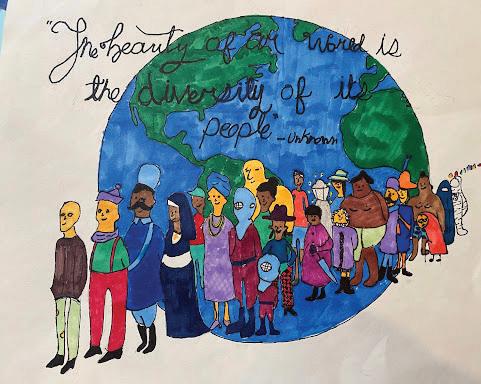 "The beauty of our world is
the diversity of its
people"
-unknown